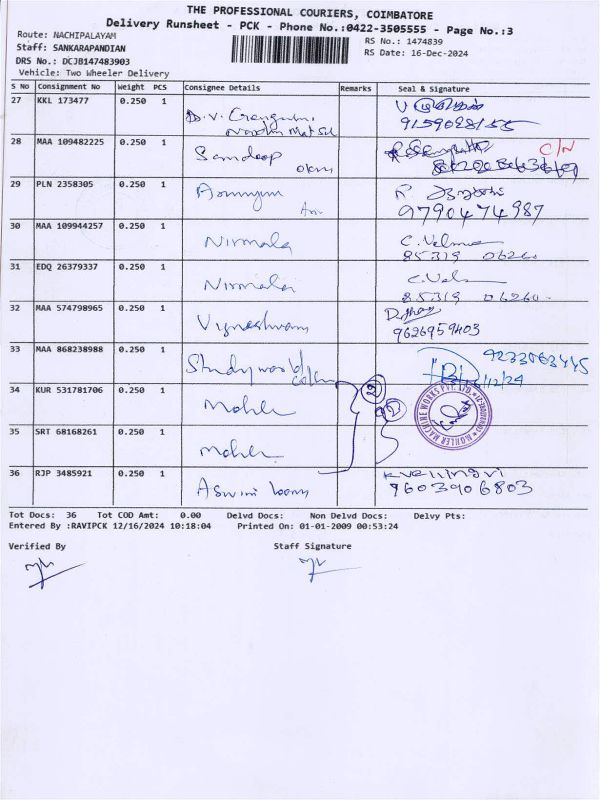 THE PROFESSIONAL COURIERS, COIMBATORE
Delivery Runsheet - PCK - Phone No.:0422-3505555 - Page No.:3
Route: NACHIPALAYAM
RS No.: 1474839
Staff: SANKARAPANDIAN
RS Date: 16-Dec-2024
DRS No.: DCJB147483903
Vehicle: Two Wheeler Delivery
S No Consignment No Weight PCS Consignee Details Remarks Seal & Signature
27 KKL 173477 0.250 1
28 MAA 109482225 0.250 1 Sandeep C/N
29 PLN 2358305 0.250 1
9790474987
30 MAA 109944257 0.250 1 Nirmala
85319 06260
31 EDQ 26379337 0.250 1 Nirmala
85319 06260
32 MAA 574798965 0.250 1
9626959403
33 MAA 868238988 0.250 1
34 KUR 531781706 0.250 1 Mohler
MOHLER MACHINE WORKS PVT. LTD.
35 SRT 68168261 0.250 1 Mohler
36 RJP 3485921 0.250 1 Aswini
9603906803
Tot Docs: 36 Tot COD Amt: 0.00 Delvd Docs: Non Delvd Docs: Delvy Pts:
Entered By :RAVIPCK 12/16/2024 10:18:04 Printed On: 01-01-2009 00:53:24
Verified By Staff Signature